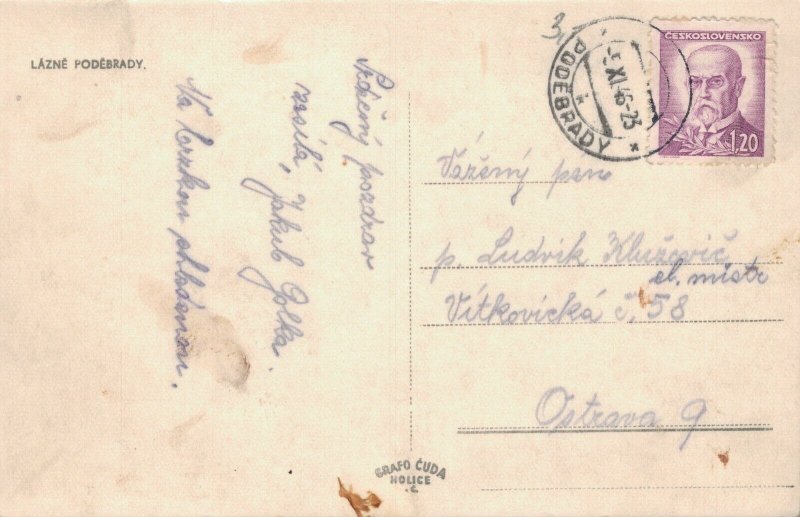 LÁZNĚ PODĚBRADY.
Srdečný pozdrav
zasílá, Jakub Golka.
Na brzkou shledanou.
3,-
PODĚBRADY
-5.XI.46-23
ČESKOSLOVENSKO
1,20
Vážený pán
p. Ludvík Klužovič
el. mistr
Vítkovická č. 58
Ostrava 9
GRAFO ČUDA
HOLICE
Č.